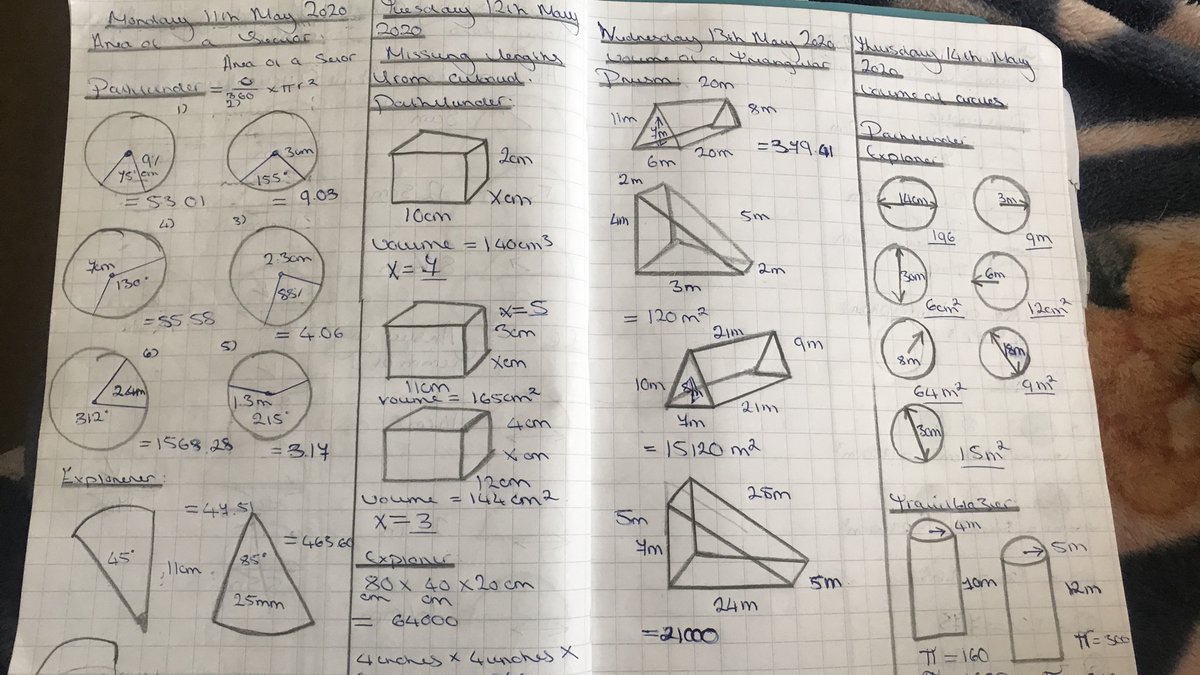 Monday 11th May 2020
Area of a Sector:
Area of a Sector
Pathfinder = θ/360 × πr²
1)
9.1 cm
75°
= 53.01
2)
3cm
155°
= 9.03
4)
7cm
130°
= 55.58
3)
2.3cm
88°
= 4.06
6)
24m
312°
= 1568.28
5)
1.3m
215°
= 3.17
Explorer:
45°
11cm
= 47.51
85°
25mm
= 463.60
Tuesday 12th May
2020
Missing lengths
from cuboid.
Pathfinder:
2cm
xcm
10cm
volume = 140cm³
x = 7
x=5
3cm
xcm
11cm
volume = 165cm²
4cm
xcm
12cm
volume = 144cm²
x = 3
Explorer
80 × 40 × 20 cm
cm cm
= 64000
4 inches × 4 inches ×
Wednesday 13th May 2020
volume of a triangular
Prism:
20m
11m
8m
7m
6m
20m
= 379.41
2m
4m
5m
2m
3m
= 120m²
21m
9m
10m
8m
7m
21m
= 15120m²
25m
5m
7m
5m
24m
= 21000
Thursday 14th May
2020
volume of circles
Pathfinder
Explorer
14cm
196
3m
9m
3cm
6cm²
6m
12cm²
8m
64m²
18m
9m²
3cm
15m²
Trailblazier
4m
10m
π = 160
5m
12m
π = 300